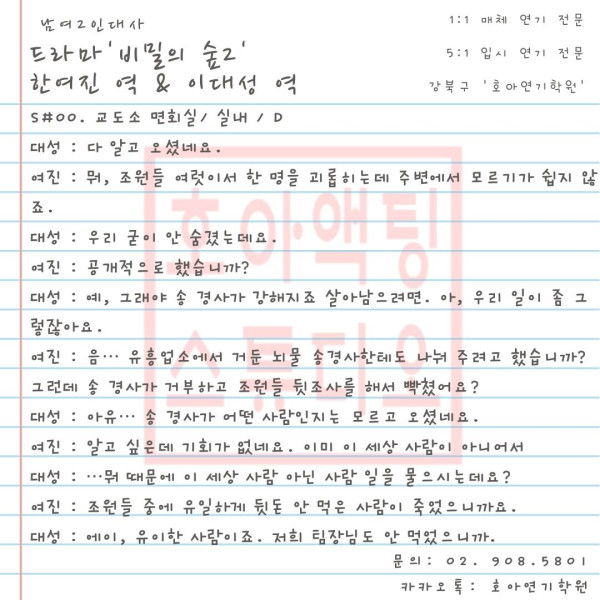 남여2인대사
1:1 매체 연기 전문
드라마'비밀의 숲2'
5:1 입시 연기 전문
한여진 역 & 이대성 역
강북구 '호아연기학원'
S#00. 교도소 면회실/ 실내 / D
대성 : 다 알고 오셨네요.
여진 : 뭐, 조원들 여럿이서 한 명을 괴롭히는데 주변에서 모르기가 쉽지 않
죠.
대성 : 우리 굳이 안 숨겼는데요.
여진 : 공개적으로 했습니까?
대성 : 예, 그래야 송 경사가 강해지죠 살아남으려면. 아, 우리 일이 좀 그
렇잖아요.
여진 : 음… 유흥업소에서 거둔 뇌물 송경사한테도 나눠 주려고 했습니까?
그런데 송 경사가 거부하고 조원들 뒷조사를 해서 빡쳤어요?
대성 : 아유… 송 경사가 어떤 사람인지는 모르고 오셨네요.
여진 : 알고 싶은데 기회가 없네요. 이미 이 세상 사람이 아니어서
대성 : …뭐 때문에 이 세상 사람 아닌 사람 일을 물으시는데요?
여진 : 조원들 중에 유일하게 뒷돈 안 먹은 사람이 죽었으니까요.
대성 : 에이, 유이한 사람이죠. 저희 팀장님도 안 먹었으니까.
문의: 02. 908.5801
카카오톡: 호아연기학원
호아액팅
스튜디오